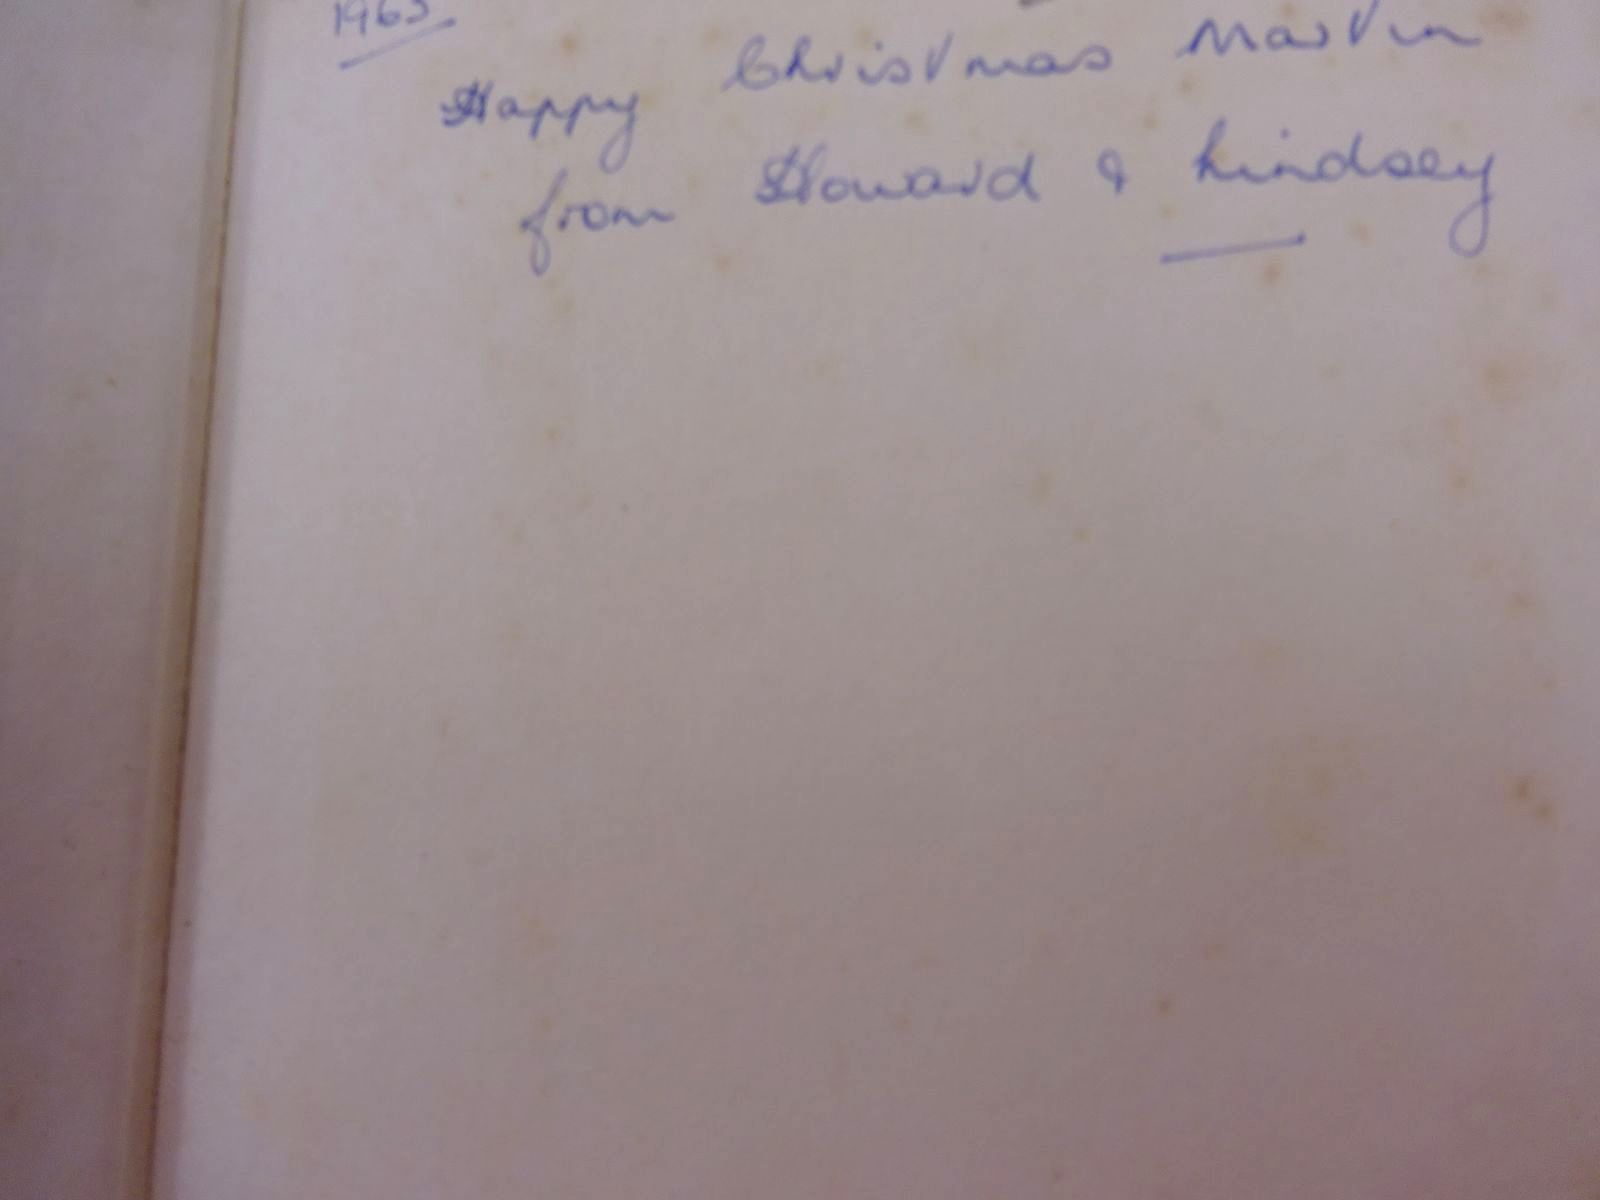 1963
Happy Christmas Martin
from Howard & Lindsey